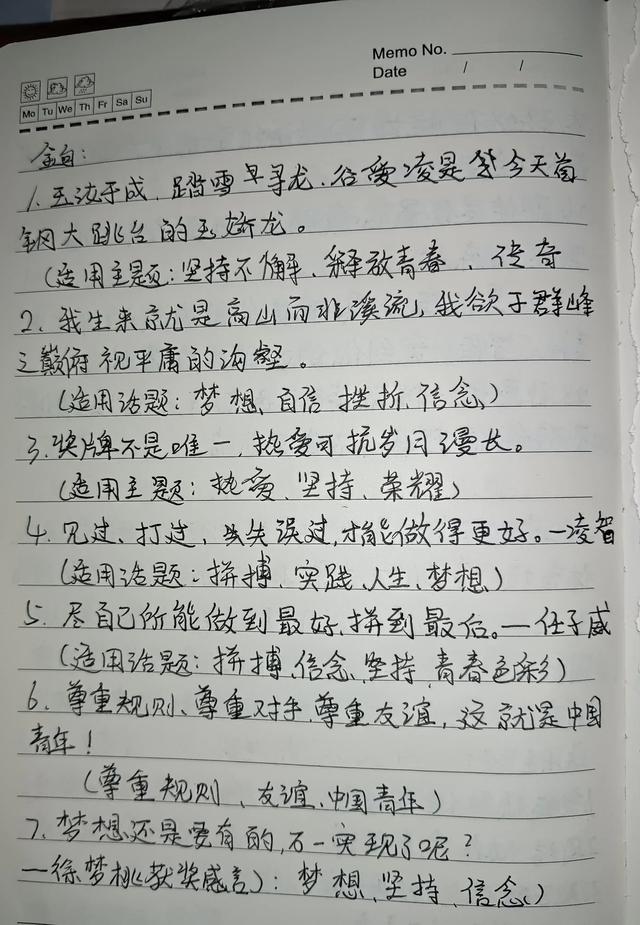 Memo No.
Date / /
Mo Tu We Th Fr Sa Su
金句:
1. 玉汝于成, 踏雪早寻龙. 谷爱凌是今天首
钢大跳台的玉娇龙。
(适用主题: 坚持不懈、释放青春、传奇
2. 我生来就是高山而非溪流, 我欲于群峰
之巅俯视平庸的沟壑。
(适用话题: 梦想、自信 挫折、信念)
3. 奖牌不是唯一, 热爱可抗岁月漫长。
(适用主题: 热爱、坚持、荣耀)
4. 见过、打过, 失误过, 才能做得更好。—凌智
(适用话题: 拼搏、实践、人生、梦想)
5. 尽自己所能做到最好, 拼到最后。—任子威
(适用话题: 拼搏、信念、坚持、青春色彩)
6. 尊重规则、尊重对手、尊重友谊, 这就是中国
青年!
(尊重规则、友谊、中国青年)
7. 梦想还是要有的, 不一实现了呢?
—徐梦桃获奖感言): 梦想、坚持、信念()